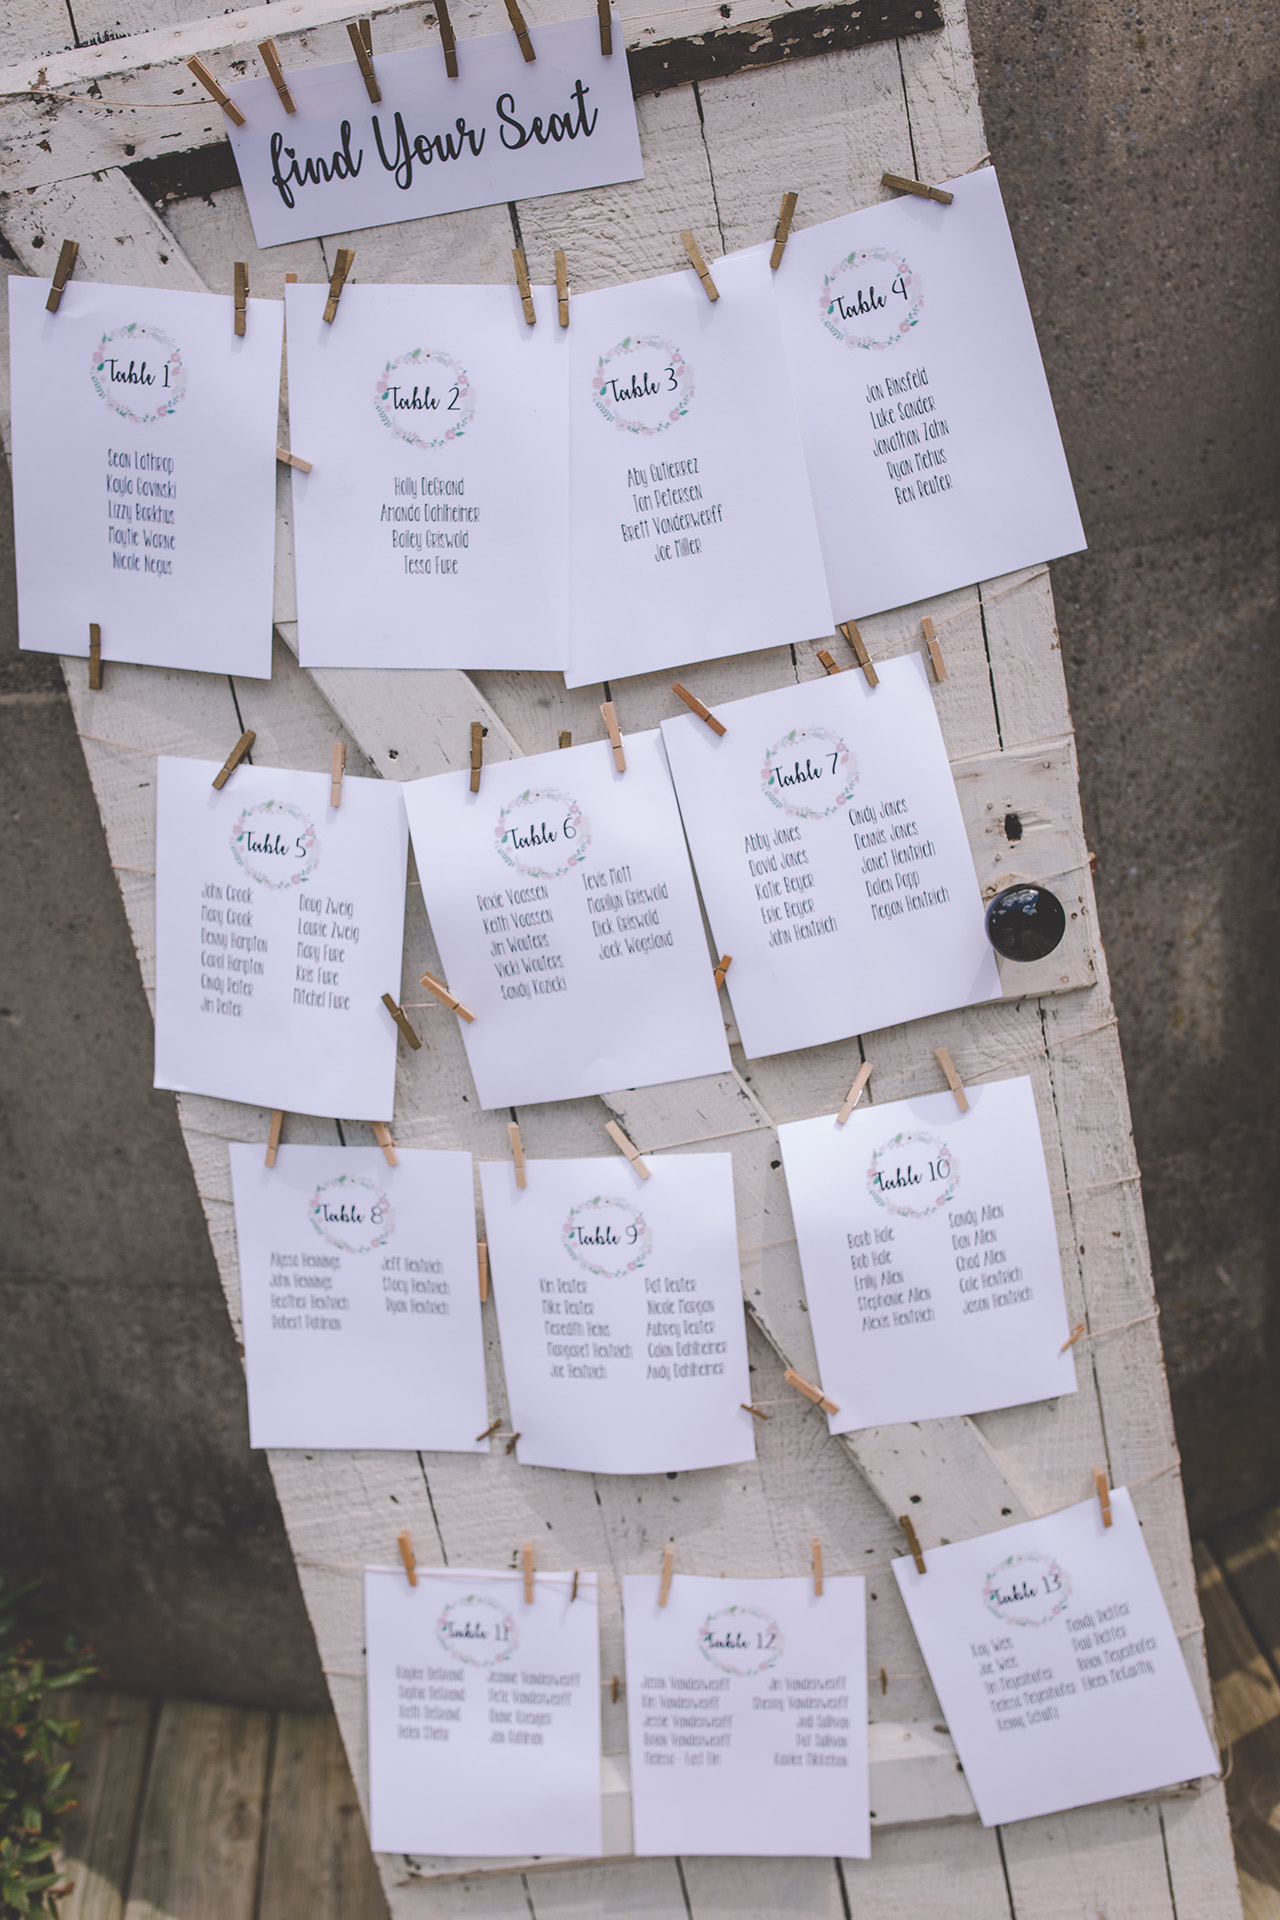 find Your Seat
Table 1
Sean Lathrop
Kayla Gavinski
Lizzy Barkhus
Maytie Warne
Nicole Negus
Table 2
Holly DeGrand
Amanda Dahlheimer
Bailey Griswold
Tessa Fure
Table 3
Aby Gutierrez
Tom Petersen
Brett Vanderwerff
Joe Miller
Table 4
Jon Binsfeld
Luke Sander
Jonathon Zahn
Ryan Mehus
Ben Reuter
Table 5
John Crook
Mary Crook
Denny Hampton
Carol Hampton
Cindy Reiter
Jim Reiter
Doug Zweig
Laurie Zweig
Mary Fure
Kris Fure
Mitchel Fure
Table 6
Roxie Vaassen
Keith Vaassen
Jim Wouters
Vicki Wouters
Sandy Kozicki
Tevis Mott
Marilyn Griswold
Dick Griswold
Jack Wogsland
Table 7
Abby Jones
David Jones
Katie Beyer
Eric Beyer
John Hentrich
Cindy Jones
Dennis Jones
Janet Hentrich
Dalen Popp
Megan Hentrich
Table 8
Alyssa Hennings
John Hennings
Heather Hentrich
Robert Dahlman
Jeff Hentrich
Stacy Hentrich
Ryan Hentrich
Table 9
Kim Reuter
Mike Reuter
Meredith Heins
Margaret Hentrich
Joe Hentrich
Pat Reuter
Nicole Morgan
Aubrey Reuter
Colan Dahlheimer
Andy Dahlheimer
Table 10
Barb Hole
Bob Hole
Emily Allen
Stephanie Allen
Alexis Hentrich
Sandy Allen
Dan Allen
Chad Allen
Cole Hentrich
Jason Hentrich
Table 11
Kaylee DeGrand
Sophia DeGrand
Beth DeGrand
Helen
Jeanne Vanderwerff
Pete Vanderwerff
Diane
Jan Dahlman
Table 12
Jason Vanderwerff
Kim Vanderwerff
Jessie Vanderwerff
Brian Vanderwerff
Melissa
Jim Vanderwerff
Sherry Vanderwerff
Jodi Sullivan
Pat Sullivan
Kaylee
Table 13
Kay Wiess
Joe Wiess
Tim Meyerhofer
Melissa Meyerhofer
Kenny Schultz
Mandy Richter
Paul Richter
Brian Meyerhofer
Eileen McCarthy